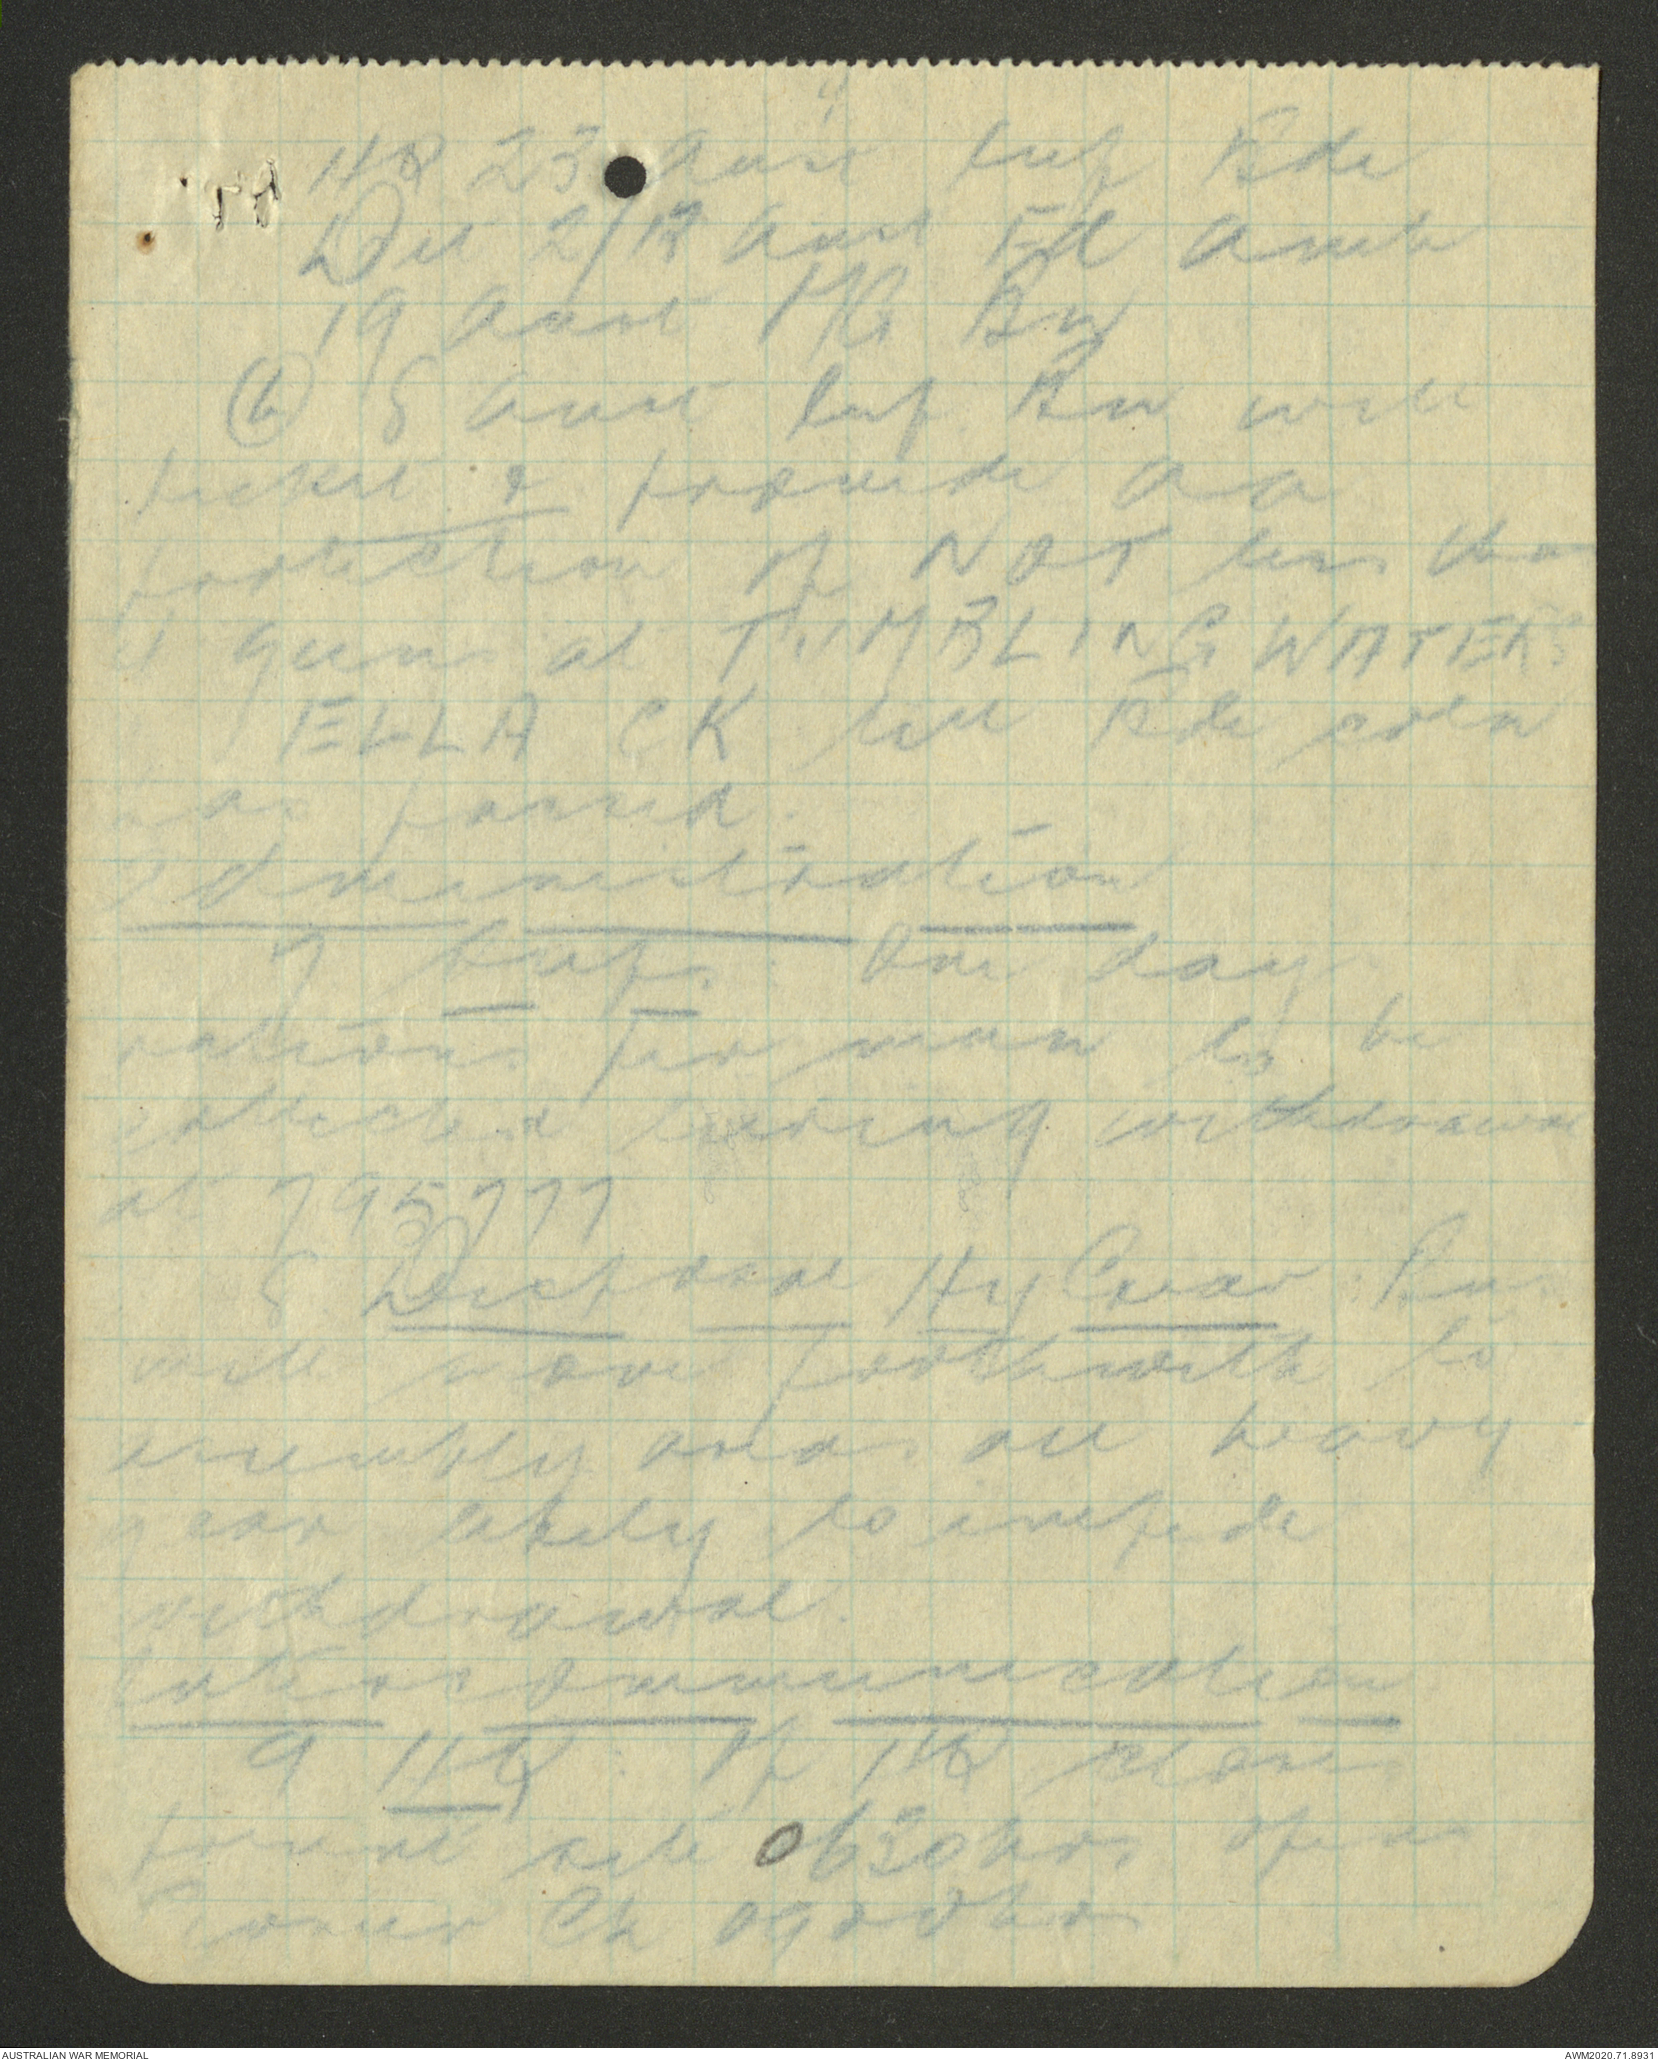 HQ 23 Aust Inf Bde
Det 2/12 Aust Fd Amb
19 Aust MG Bn
(b) 8 Aust Inf Bn will
picket & provide AA
protection of NOT less than
guns at TUMBLING WATERS
ELLA CK till Bde coln
has passed.
Administration
7 Sups: One days
rations per man to be
collected during withdrawal
at 795777
8 Disposal Hy Gear: Bn
will move forthwith to
assembly area all heavy
gear likely to impede
withdrawal.
Intercommunication
9 HQ: Op HQ closes
present site 0630hrs opens
Ck 0900hrs
AUSTRALIAN WAR MEMORIAL
AWM2020.71.8931